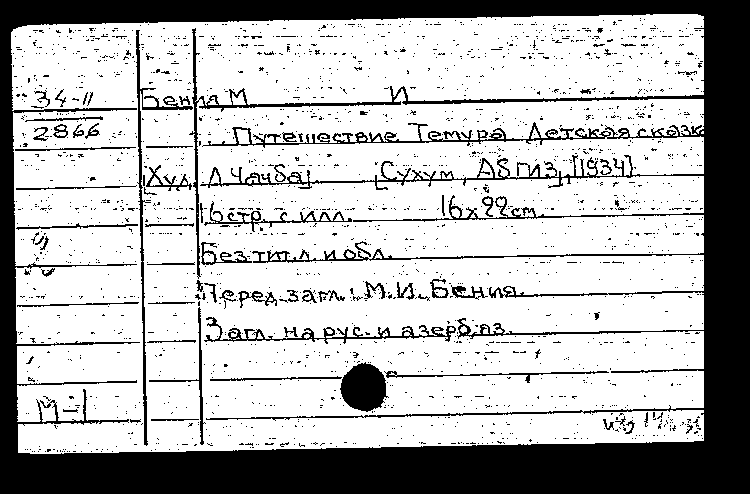 34-II Бения, М И
2866 ... Путешествие Темура Детская сказка
[Худ. Л. Чачба]. [Сухум, Абгиз], [1934].
16 стр., с илл. 16х22 cm.
Без тит. л. и обл.
Перед загл.: М.И. Бения.
Загл. на рус. и азерб. яз.
М-I